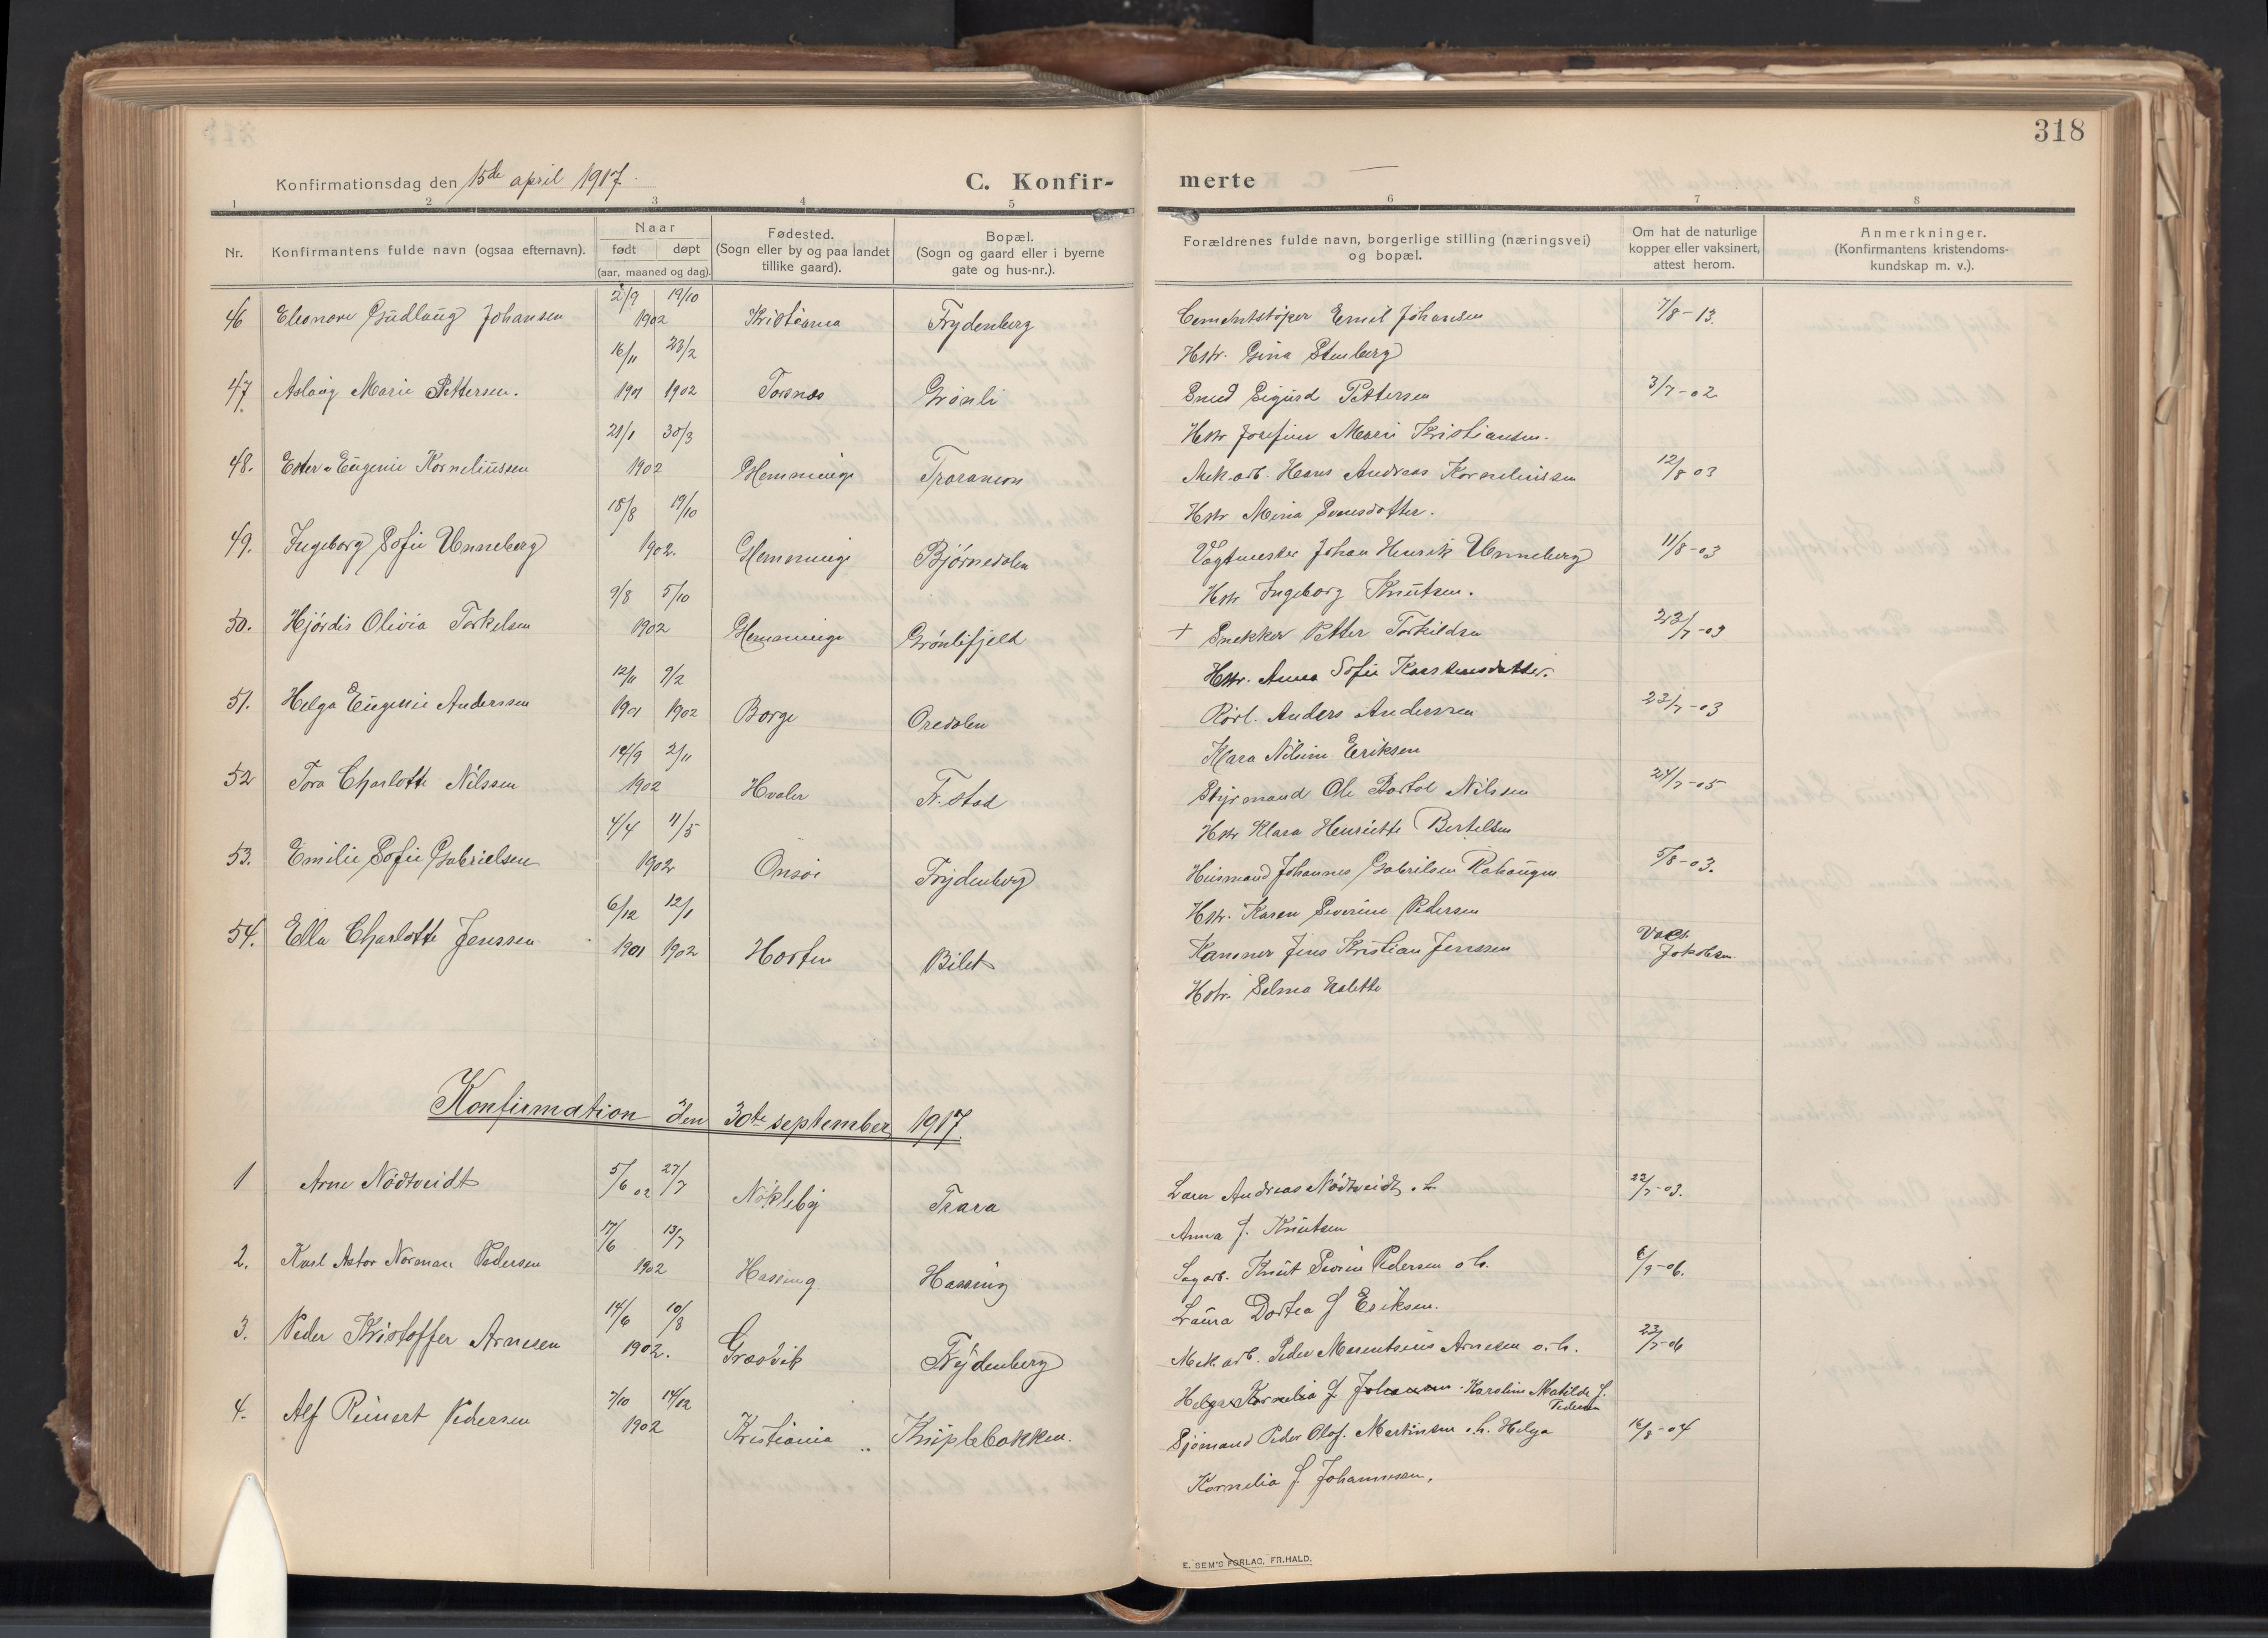 318
Konfirmationsdag den 15de april 1917.
C. Konfir-
merte
1 2 3 4 5 6 7 8
Nr.
Konfirmantens fulde navn (ogsaa efternavn).
Naar
født døpt
(aar, maaned og dag).
Fødested.
(Sogn eller by og paa landet
tillike gaard).
Bopæl.
(Sogn og gaard eller i byerne
gate og hus-nr.).
Forældrenes fulde navn, borgerlige stilling (næringsvei)
og bopæl.
Om hat de naturlige
kopper eller vaksinert,
attest herom.
Anmerkninger.
(Konfirmantens kristendoms-
kundskap m. v.).
2/9 19/10
46 Eleonore Gudlaug Johansen 1902 Kristiania Frydenberg Cementstøper Emil Johansen 7/8-13.
16/11 23/2 Hstr. Gina Stenberg
47. Aslaug Marie Pettersen. 1901 1902 Torsnes Grønli Smed Sigurd Pettersen 3/7-02
21/1 30/3 Hstr Josefine Marie Kristiansen.
48. Ester Eugenie Korneliussen 1902 Glemminge Traramon Mek.arb. Hans Andreas Korneliussen 12/8 03
18/8 19/10 Hstr Mina Svensdotter.
49. Ingeborg Sofie Unneberg 1902. Glemminge Bjørnedalen Vogtmester Johan Henrik Unneberg 11/8-03
9/8 5/10 Hstr Ingeborg Knutsen.
50. Hjørdis Olivia Torkelsen 1902 Glemminge Grønlifjeld + Snekker Petter Torkildsen 23/7-03
12/11 9/2 Hstr. Anna Sofie Karstensdatter.
51. Helga Eugenie Anderssen 1901 1902 Borge Oredalen Rørl. Anders Anderssen 23/7-03
14/9 2/11 Klara Nilsine Eriksen
52 Tora Charlotte Nilssen 1902 Hvaler Fr.stad Styrmand Ole Bartol Nilssen 24/7-05
4/4 11/5 Hstr Klara Henriette Bertelsen
53. Emilie Sofie Gabrielsen 1902 Onsøi Frydenberg Husmand Johannes Gabrielsen Rahaugen 5/8-03.
6/12 12/1 Hstr. Karen Severine Pedersen
54. Ella Charlotte Jenssen 1901 1902 Horten Bilet Kanoner Jens Kristian Jenssen Vacs. Jakobsen
Hstr. Selma Valette
Konfirmation den 30te september 1917.
1 Arne Nødtveidt 5/6 02 27/7 Nøkleby Trara Lærer Andreas Nødtveidt o.h. 22/7-03.
17/6 13/7 Anna J. Knutsen
2. Karl Astor Norman Pedersen 1902 Hassing Hassing Sagarb. Knut Severin Pedersen o h. 6/9-06.
14/6 10/8 Laura Dortea f Eriksen.
3. Peder Kristoffer Arnesen 1902. Græsvik Frydenberg Mek arb. Peder Marentsius Arnesen o.h. 23/7-06
7/10 14/12 Helga Kornelia f Johansen. Karoline Matilde f. Pedersen
4. Alf Reinert Pedersen 1902 Kristiania Kniplebakken. Sjømand Peder Olaf. Martinsen o.h. Helga 16/8-04
Kornelia f. Johannesen.
E. SEM'S FORLAG, FR.HALD.